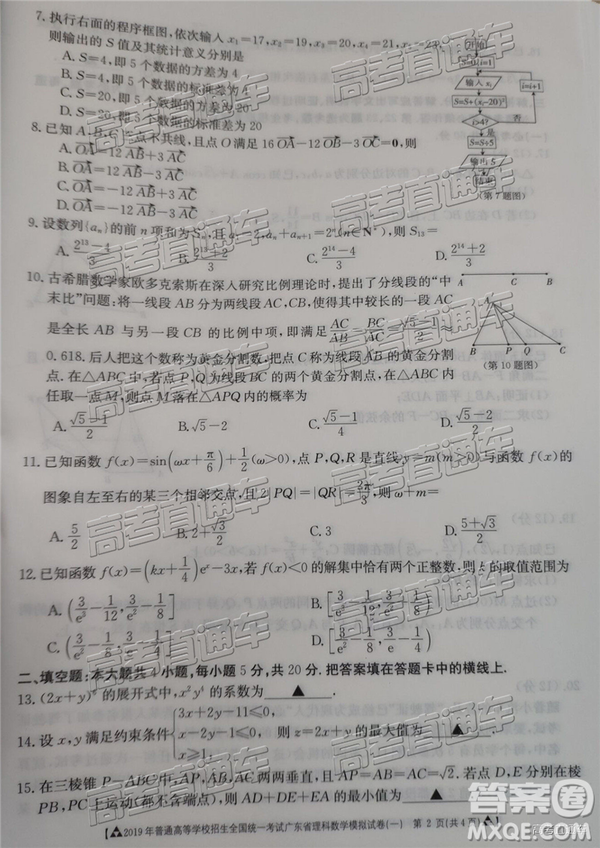 7. 执行右面的程序框图,依次输入 x₁=17, x₂=19, x₃=20, x₄=21, x₅=23,
则输出的 S 值及其统计意义分别是
A. S=4,即 5 个数据的方差为 4
B. S=4,即 5 个数据的标准差为 4
C. S=20,即 5 个数据的方差为 20
D. S=20,即 5 个数据的标准差为 20
输入 xᵢ
i=i+1
S=S+(xᵢ-20)²
否
是
结束
(第 7 题图)
8. 已知 A, B, C 三点不共线,且点 O 满足 16 OA-12 OB-3 OC=0,则
A. OA=12 AB+3 AC
B. OA=12 AB-3 AC
C. OA=-12 AB+3 AC
D. OA=-12 AB-3 AC
9. 设数列{aₙ}的前 n 项和为 Sₙ,且 aₙ+aₙ₊₁=2ⁿ(n∈N*),则 S₁₃=
A. (2¹³-4)/3 B. (2¹³+2)/3 C. (2¹⁴-4)/3 D. (2¹⁴+2)/3
10. 古希腊数学家欧多克索斯在深入研究比例理论时,提出了分线段的“中
末比”问题:将一线段 AB 分为两线段 AC, CB,使得其中较长的一段 AC
是全长 AB 与另一段 CB 的比例中项,即满足 AC/AB=BC/AC=(√5-1)/2≈
0.618.后人把这个数称为黄金分割数,把点 C 称为线段 AB 的黄金分割
点.在△ABC 中,若点 P, Q 为线段 BC 的两个黄金分割点,在△ABC 内
任取一点 M,则点 M 落在△APQ 内的概率为
A C B
A
B P Q C
(第 10 题图)
A. √5/2 B. √5-2 C. (√5-1)/4 D. (√5-2)/2
11. 已知函数 f(x)=sin(ωx+π/6)+1/2(ω>0),点 P, Q, R 是直线 y=m(m>0)与函数 f(x)的
图象自左至右的某三个相邻交点,且 2|PQ|=|QR|=2π/3,则 ω+m=
A. 5/2 B. 2+√2 C. 3 D. (5+√3)/2
12. 已知函数 f(x)=(kx+1/4)eˣ-3x,若 f(x)<0 的解集中恰有两个正整数,则 k 的取值范围为
A. (3/e³-1/12, 3/e²-1/8] B. [3/e³-1/12, 3/e²-1/8)
二、填空题:本大题共 4 小题,每小题 5 分,共 20 分.把答案填在答题卡中的横线上.
▲.
14. 设 x, y 满足约束条件{3x+2y-11≤0, x-2y-1≤0, x≥1, 则 z=2x+y 的最小值为 ▲ .
15. 在三棱锥 P-ABC 中, AP, AB, AC 两两垂直,且 AP=AB=AC=√2.若点 D, E 分别在棱
PB, PC 上运动(都不含端点),则 AD+DE+EA 的最小值为 ▲ .
【▲2019 年普通高等学校招生全国统一考试广东省理科数学模拟试卷(一) 第 2 页(共 4 页)▲】
高考直通车